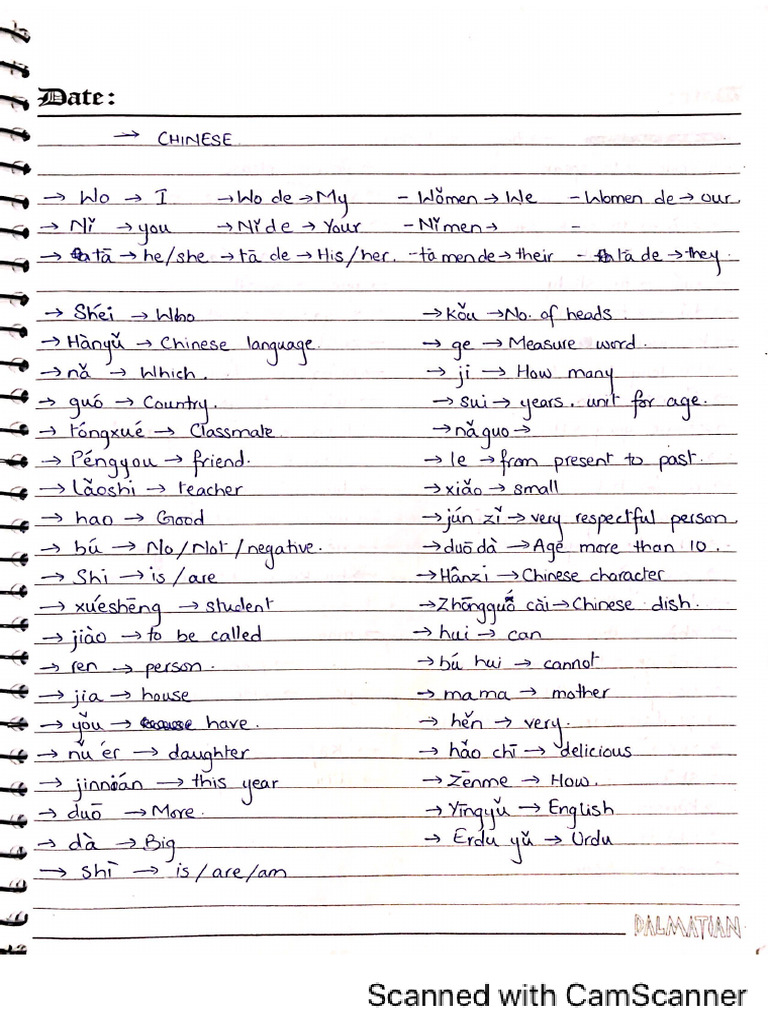 Date:
→ CHINESE
→ Wo → I →Wo de → My - Wǒmen → We - Women de → our
→ Nǐ → you → Nǐ de → Your - Nǐmen → -
→ tā → he/she → tā de → His/her. - tā mende → their - tā de → they.
→ Shéi → Who → kǒu → No. of heads
→ Hànyǔ → Chinese language. → ge → Measure word.
→ nǎ → Which. → ji → How many
→ guó → Country. → sui → years. unit for age.
→ tóngxué → Classmate → nǎguo →
→ Péngyou → friend. → le → from present to past.
→ Lǎoshi → teacher → xiǎo → small
→ hao → Good → jún zǐ → very respectful person.
→ bú → No/Not/negative. → duōdà → Age more than 10.
→ Shi → is/are → Hânzi → Chinese character
→ xuéshēng → student → Zhōngguó cài → Chinese dish.
→ jiào → to be called → hui → can
→ ren → person. → bú hui → cannot
→ jia → house → mama → mother
→ yǒu → have. → hěn → very.
→ nǔ ér → daughter → hǎo chī → delicious
→ jinnián → this year → Zēnme → How.
→ duō → More. → Yīngyǔ → English
→ dà → Big → Erdu yǔ → Urdu
→ shī → is/are/am
DALMATIAN
Scanned with CamScanner